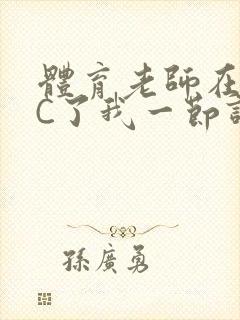 體育老師在
C了我一節
孫廣勇